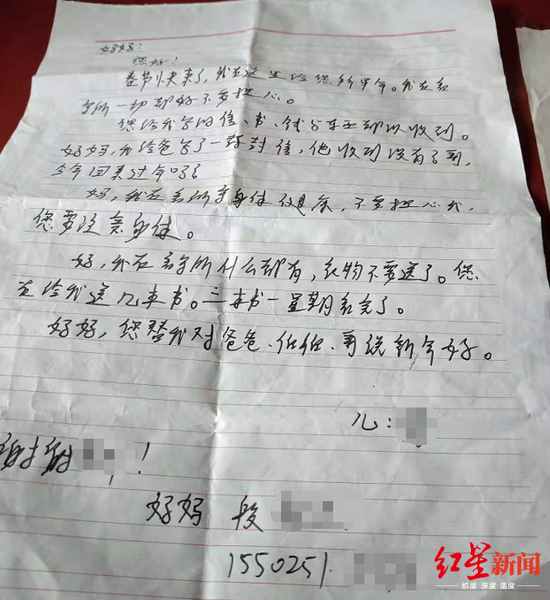 妈妈:
您好!
春节快来了,我在这里给您拜早年。我在看
守所一切都好不要担心。
您给我写的信、书、钱和东西都以收到。
妈妈,我给爸写了一封信,他收到没有
今年回来过年吗?
妈,我在看所守身体健康,不要担心我,
您要注意身体。
妈,我在看守所什么都有,衣物不要送了。您
在给我送几本书。三本书一星期看完了。
妈妈,您替我对爸爸、伯伯、哥说新年好。
儿:
谢谢 !
妈妈 段
1550251
红星新闻
锐度 深度 温度